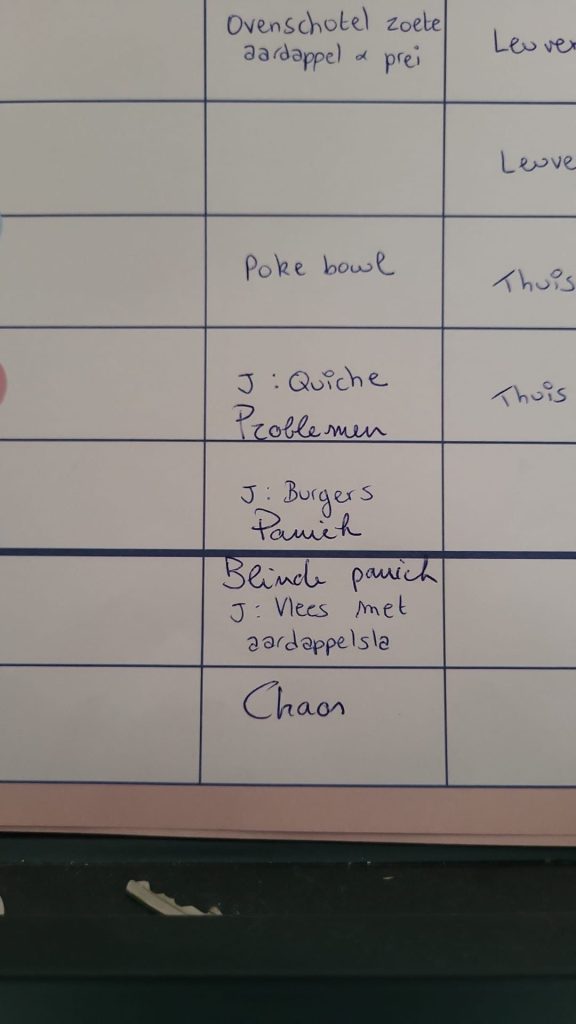 Ovenschotel zoete
aardappel & prei
Leuven
Leuve
Poke bowl
Thuis
J: Quiche
Problemen
Thuis
J: Burgers
Paniek
Blinde paniek
J: Vlees met
aardappelsla
Chaos